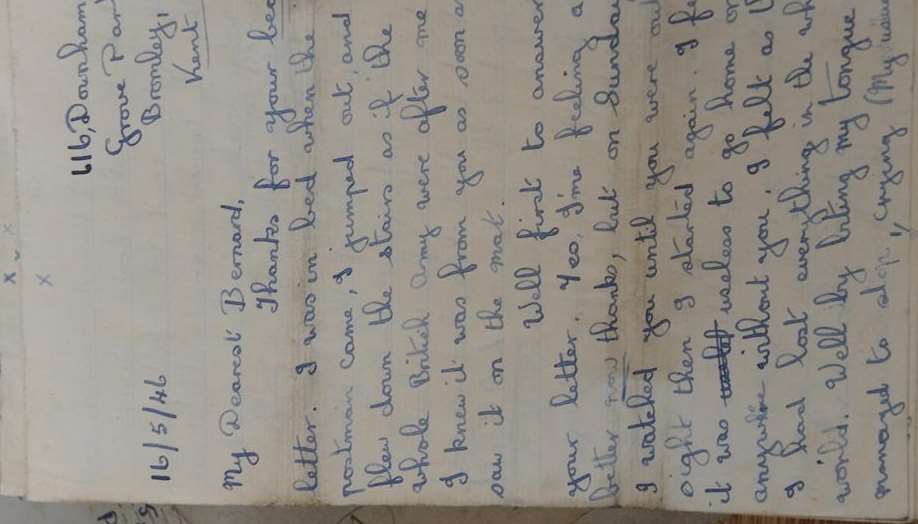 x x
x
616, Downham
Grove Par
Bromley,
Kent
16/5/46
My Dearest Bernard,
Thanks for your
letter. I was in bed when the
postman came, I jumped out, and
flew down the stairs as if the
whole British Army were after me
I knew it was from you as soon a
saw it on the mat.
Well first to answer
your letter. Yes, I'me feeling a
better now thanks, but on Sunday
I watched you until you were ou
sight then I started again. I fe
it was useless to go home or
anywhere without you, I felt as
I had lost everything in the wh
world. Well by biting my tongue
managed to stop, crying (My